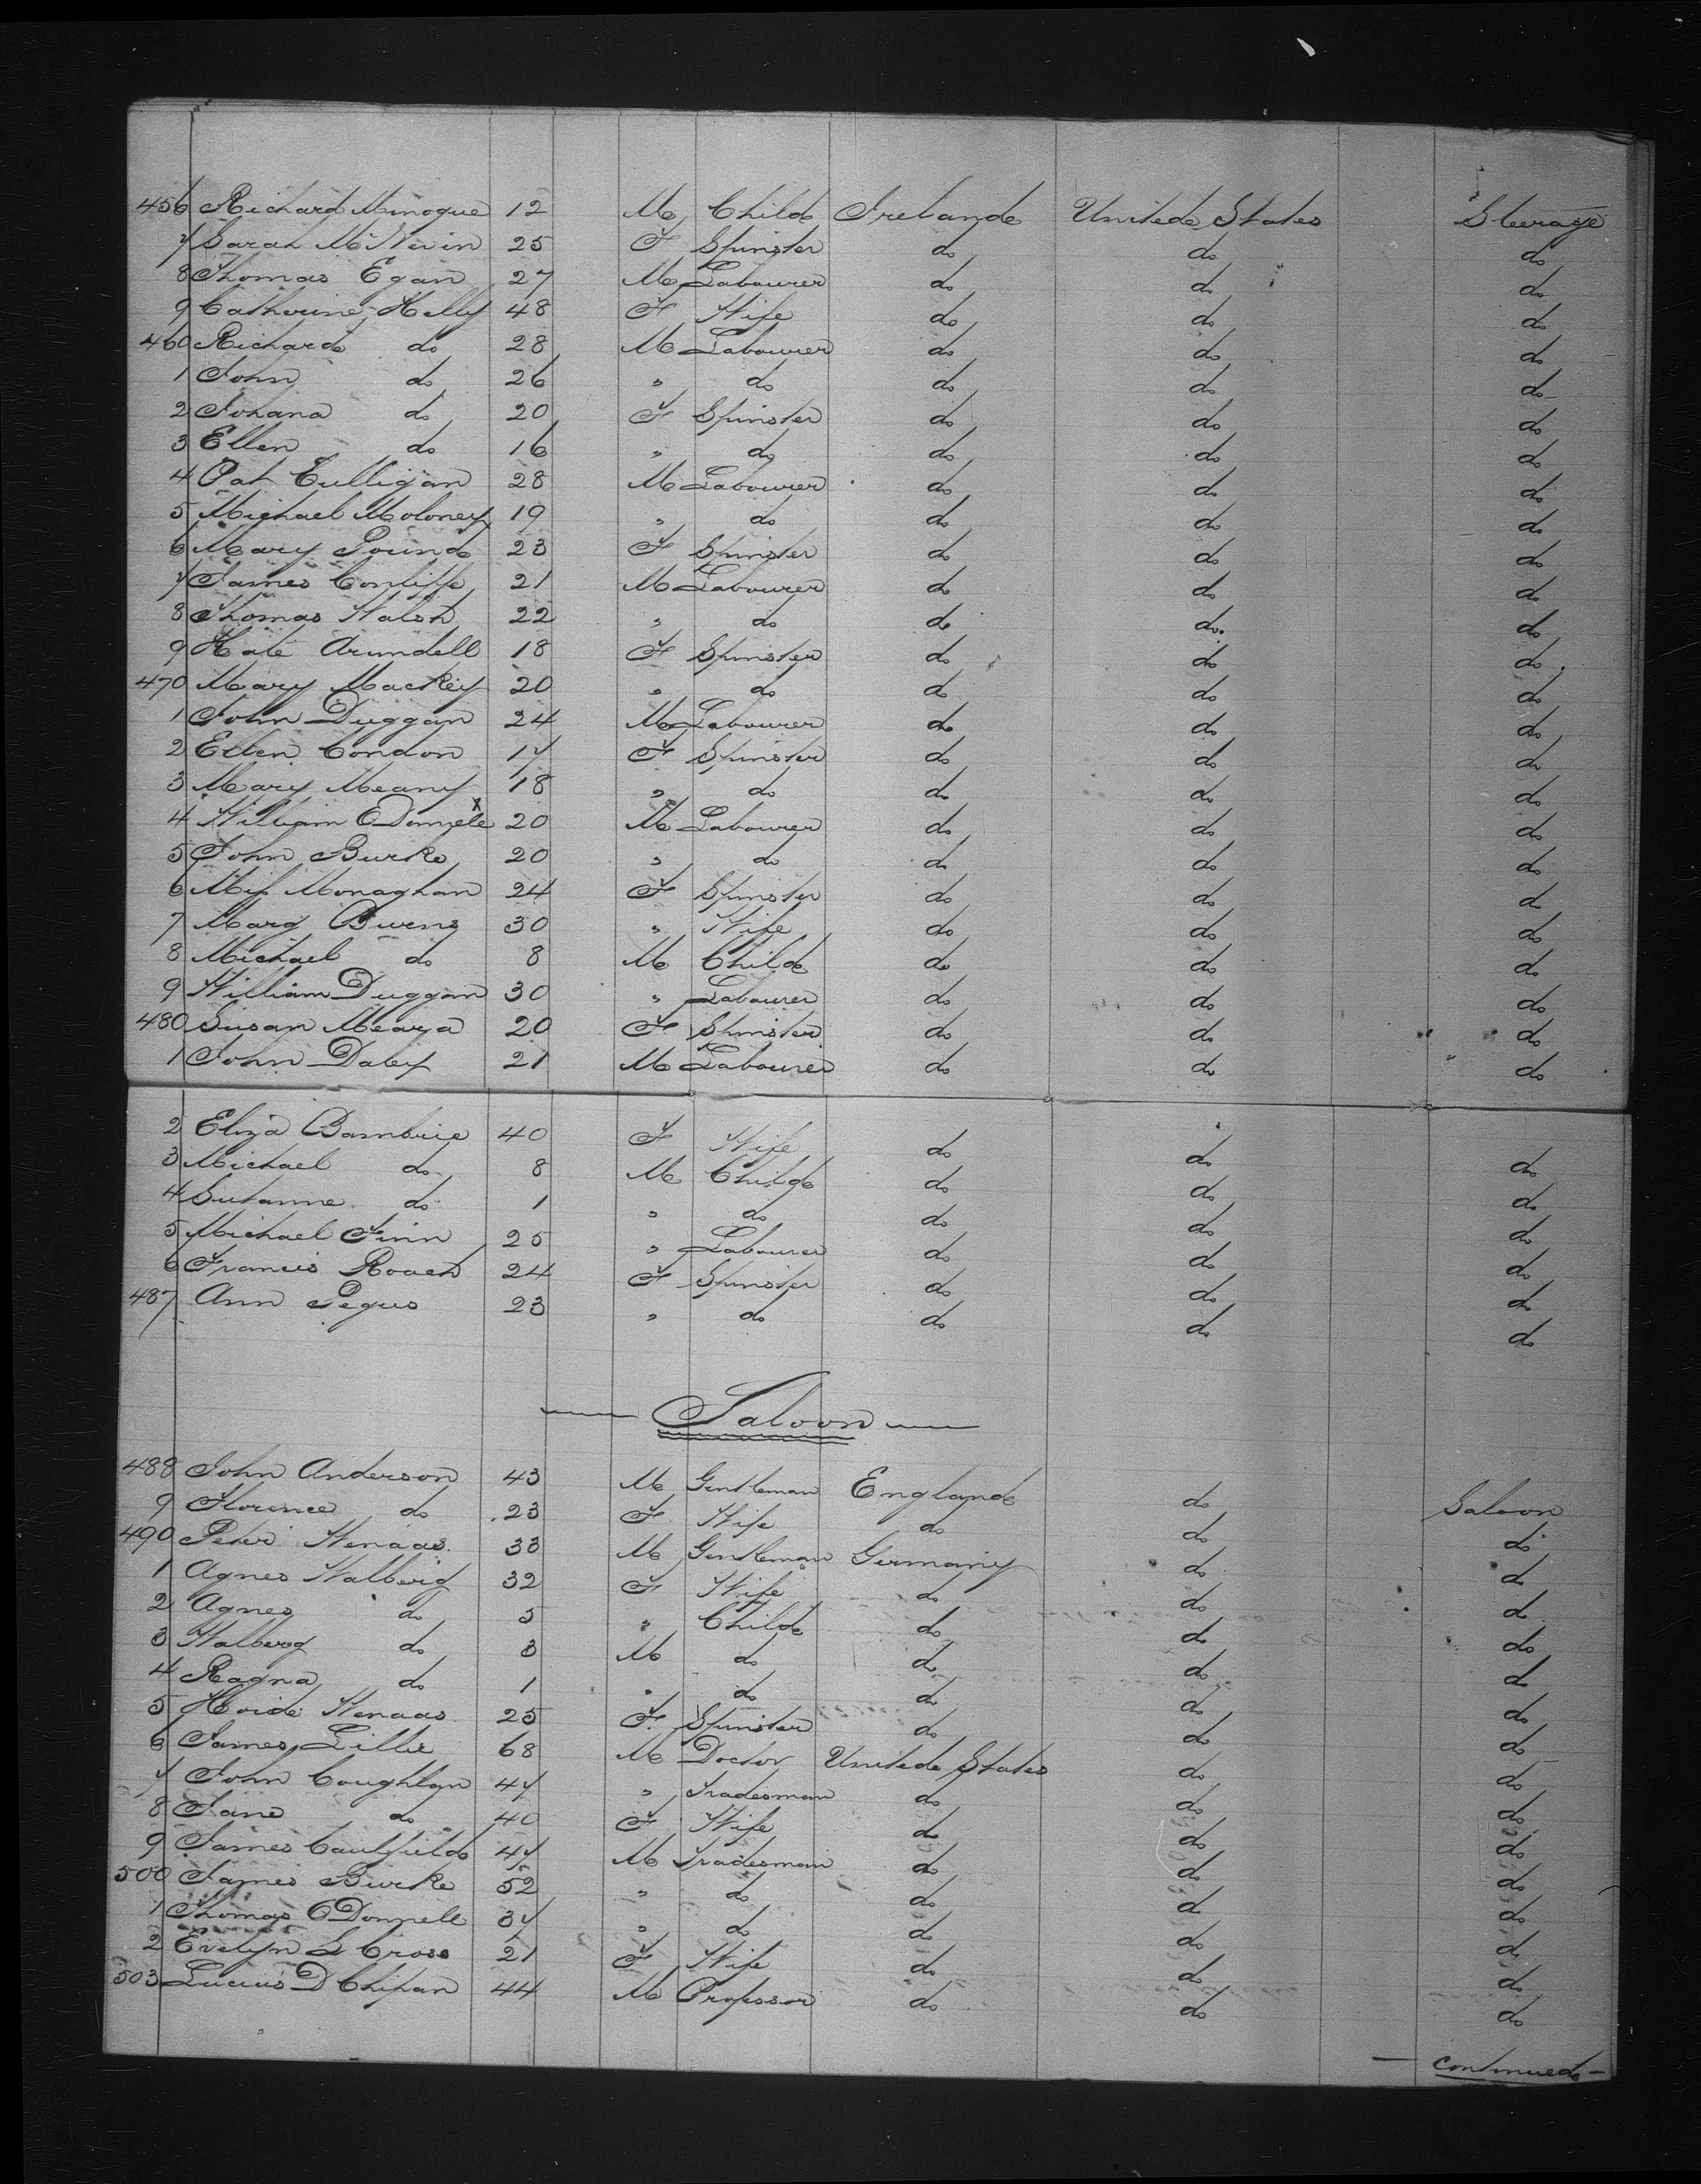 456 Richard Minogue 12 M Child Ireland United States Steerage
7 Sarah McNevin 25 F Spinster do do do
8 Thomas Egan 27 M Labourer do do do
9 Catherine Kelly 48 F Wife do do do
460 Richard do 28 M Labourer do do do
1 John do 26 " do do do do
2 Johana do 20 F Spinster do do do
3 Ellen do 16 " do do do do
4 Pat Culligan 28 M Labourer do do do
5 Michael Moloney 19 " do do do do
6 Mary Pound 23 F Spinster do do do
7 James Conliffe 21 M Labourer do do do
8 Thomas Walsh 22 " do do do do
9 Kate Arundell 18 F Spinster do do do
470 Mary Mackey 20 " do do do do
1 John Duggan 24 M Labourer do do do
2 Ellen Condon 17 F Spinster do do do
3 Mary Meany 18 " do do do do
4 William ODonnell x 20 M Labourer do do do
5 John Burke 20 " do do do do
6 Monaghan 24 F Spinster do do do
7 Marg Burns 30 " Wife do do do
8 Michael do 8 M Child do do do
9 William Duggan 30 " Labourer do do do
480 Susan Meara 20 F Spinster do do do
1 John Daley 21 M Labourer do do do
2 Eliza Bambrie 40 F Wife do do do
3 Michael do 8 M Child do do do
4 Sutanne do 1 " do do do do
5 Michael Finn 25 " Labourer do do do
6 Francis Roach 24 F Spinster do do do
487 Ann Pegus 23 " do do do do
Saloon
488 John Anderson 43 M Gentleman England do Saloon
9 Florence do 23 F Wife do do do
490 Peter Wenaas 33 M Gentleman Germany do do
1 Agnes Walberg 32 F Wife do do do
2 Agnes do 5 " Child do do do
3 Walberg do 3 M do do do do
4 Ragna do 1 " do do do do
5 Wenaas 25 F Spinster do do do
6 James Lillie 68 M Doctor United States do do
7 John Coughlan 47 " Tradesman do do do
8 Jane do 40 F Wife do do do
9 James Caulfield 47 M Tradesman do do do
500 James Burke 52 " do do do do
1 Thomas ODonnell 37 " do do do do
2 Evelyn L Cross 21 F Wife do do do
503 Lucius D Chipan 44 M Professor do do do
continued